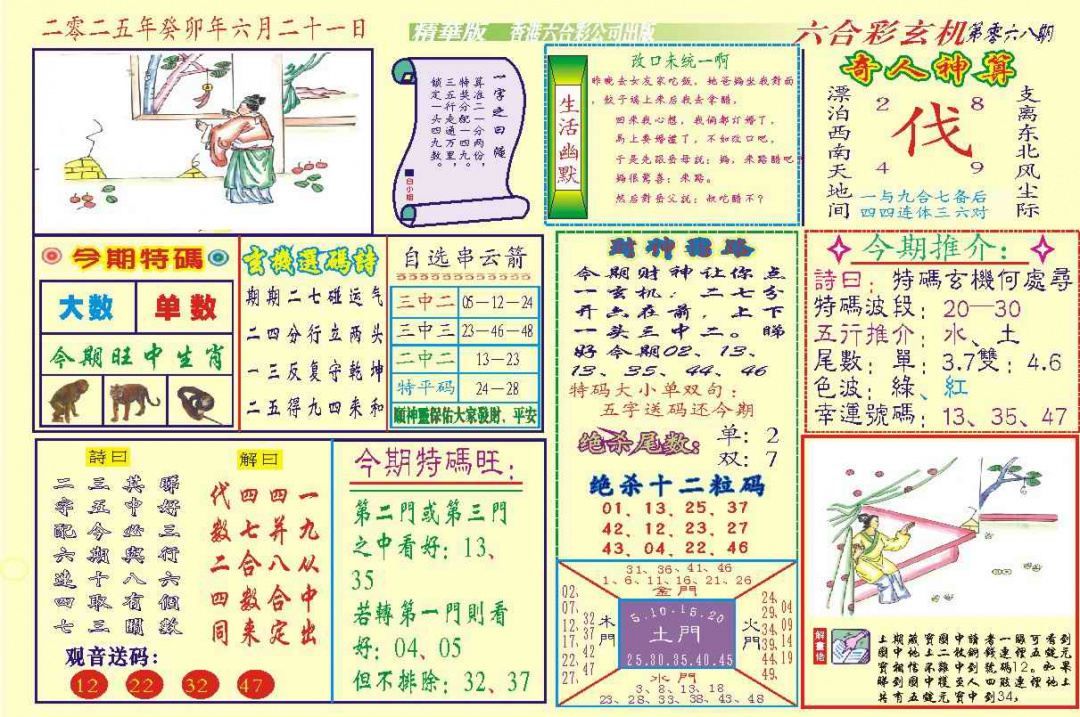 二零二五年癸卯年六月二十一日
精華版 香港六合彩公司出版
六合彩玄机第零六八期
一字之曰 隆
算准二一分两份，
特奖分配一四九，
三五行走通九万里，
锁定一头四九数。
白小姐
生活幽默
改口未统一啊
昨晚去女友家吃饭，她爸妈坐我对面
，饺子端上来后我去拿醋，
回来我心想，我俩都订婚了，
马上要婚礼了，不如改口吧，
于是先跟岳母说：妈，来路醋吧
妈很惊喜：来路。
然后對岳父說：叔吃醋不？
奇人神算
漂泊西南天地间
2 8
伐
4 9
支离东北风尘际
一与九合七备后
四四连体三六对
今期特碼
大数 单数
今期旺中生肖
玄機選碼詩
期期二七碰运气
二四分行立两头
一三反复守乾坤
二五得九四来和
自选串云箭
三中二 05—12—24
三中三 23—46—48
二中二 13—23
特平码 24—28
順神靈保佑大家發財、平安
財神指路
今期财神让你点
一玄机，二七分
开六在前，上下
一头三中二。睇
好今期02、13、
13、35、44、46
特码大小单双句：
五字送码还今期
绝杀尾数：
单：2
双：7
绝杀十二粒码
01、13、25、37
42、12、23、27
43、04、22、46
今期推介：
詩曰：特碼玄機何處尋
特碼波段：20—30
五行推介：水、土
尾數：單：3.7雙：4.6
色波：綠、紅
幸運號碼：13、35、47
詩曰
睇好三行六個數
其中必與八有關
三五今期十取三
二字配六連四七
解曰
一九从中出
四并八合定
四七合数来
代数二四同
观音送码：
12 22 32 47
今期特碼旺：
第二門或第三門
之中看好：13、
35
若轉第一門則看
好：04、05
但不排除：32、37
31、36、41、46
1、6、11、16、21、26
金門
02、07、12、17、22、27、
32 37 42 47
木門
5.10-15.20
土門
25.30.35.40.45
火門
24、29、34、39、44、49、
04 09 14 19
水門
3、8、13、18
23、28、33、38、43、48
解畫佬
上期藏寶圖中讀者一眼可看到
圖中地上二枚銅錢連裡五錠元
寶相信不難中到號碼12。如果
睇到圖中
人四肢連裡地上
共有五錠元寶中到34，